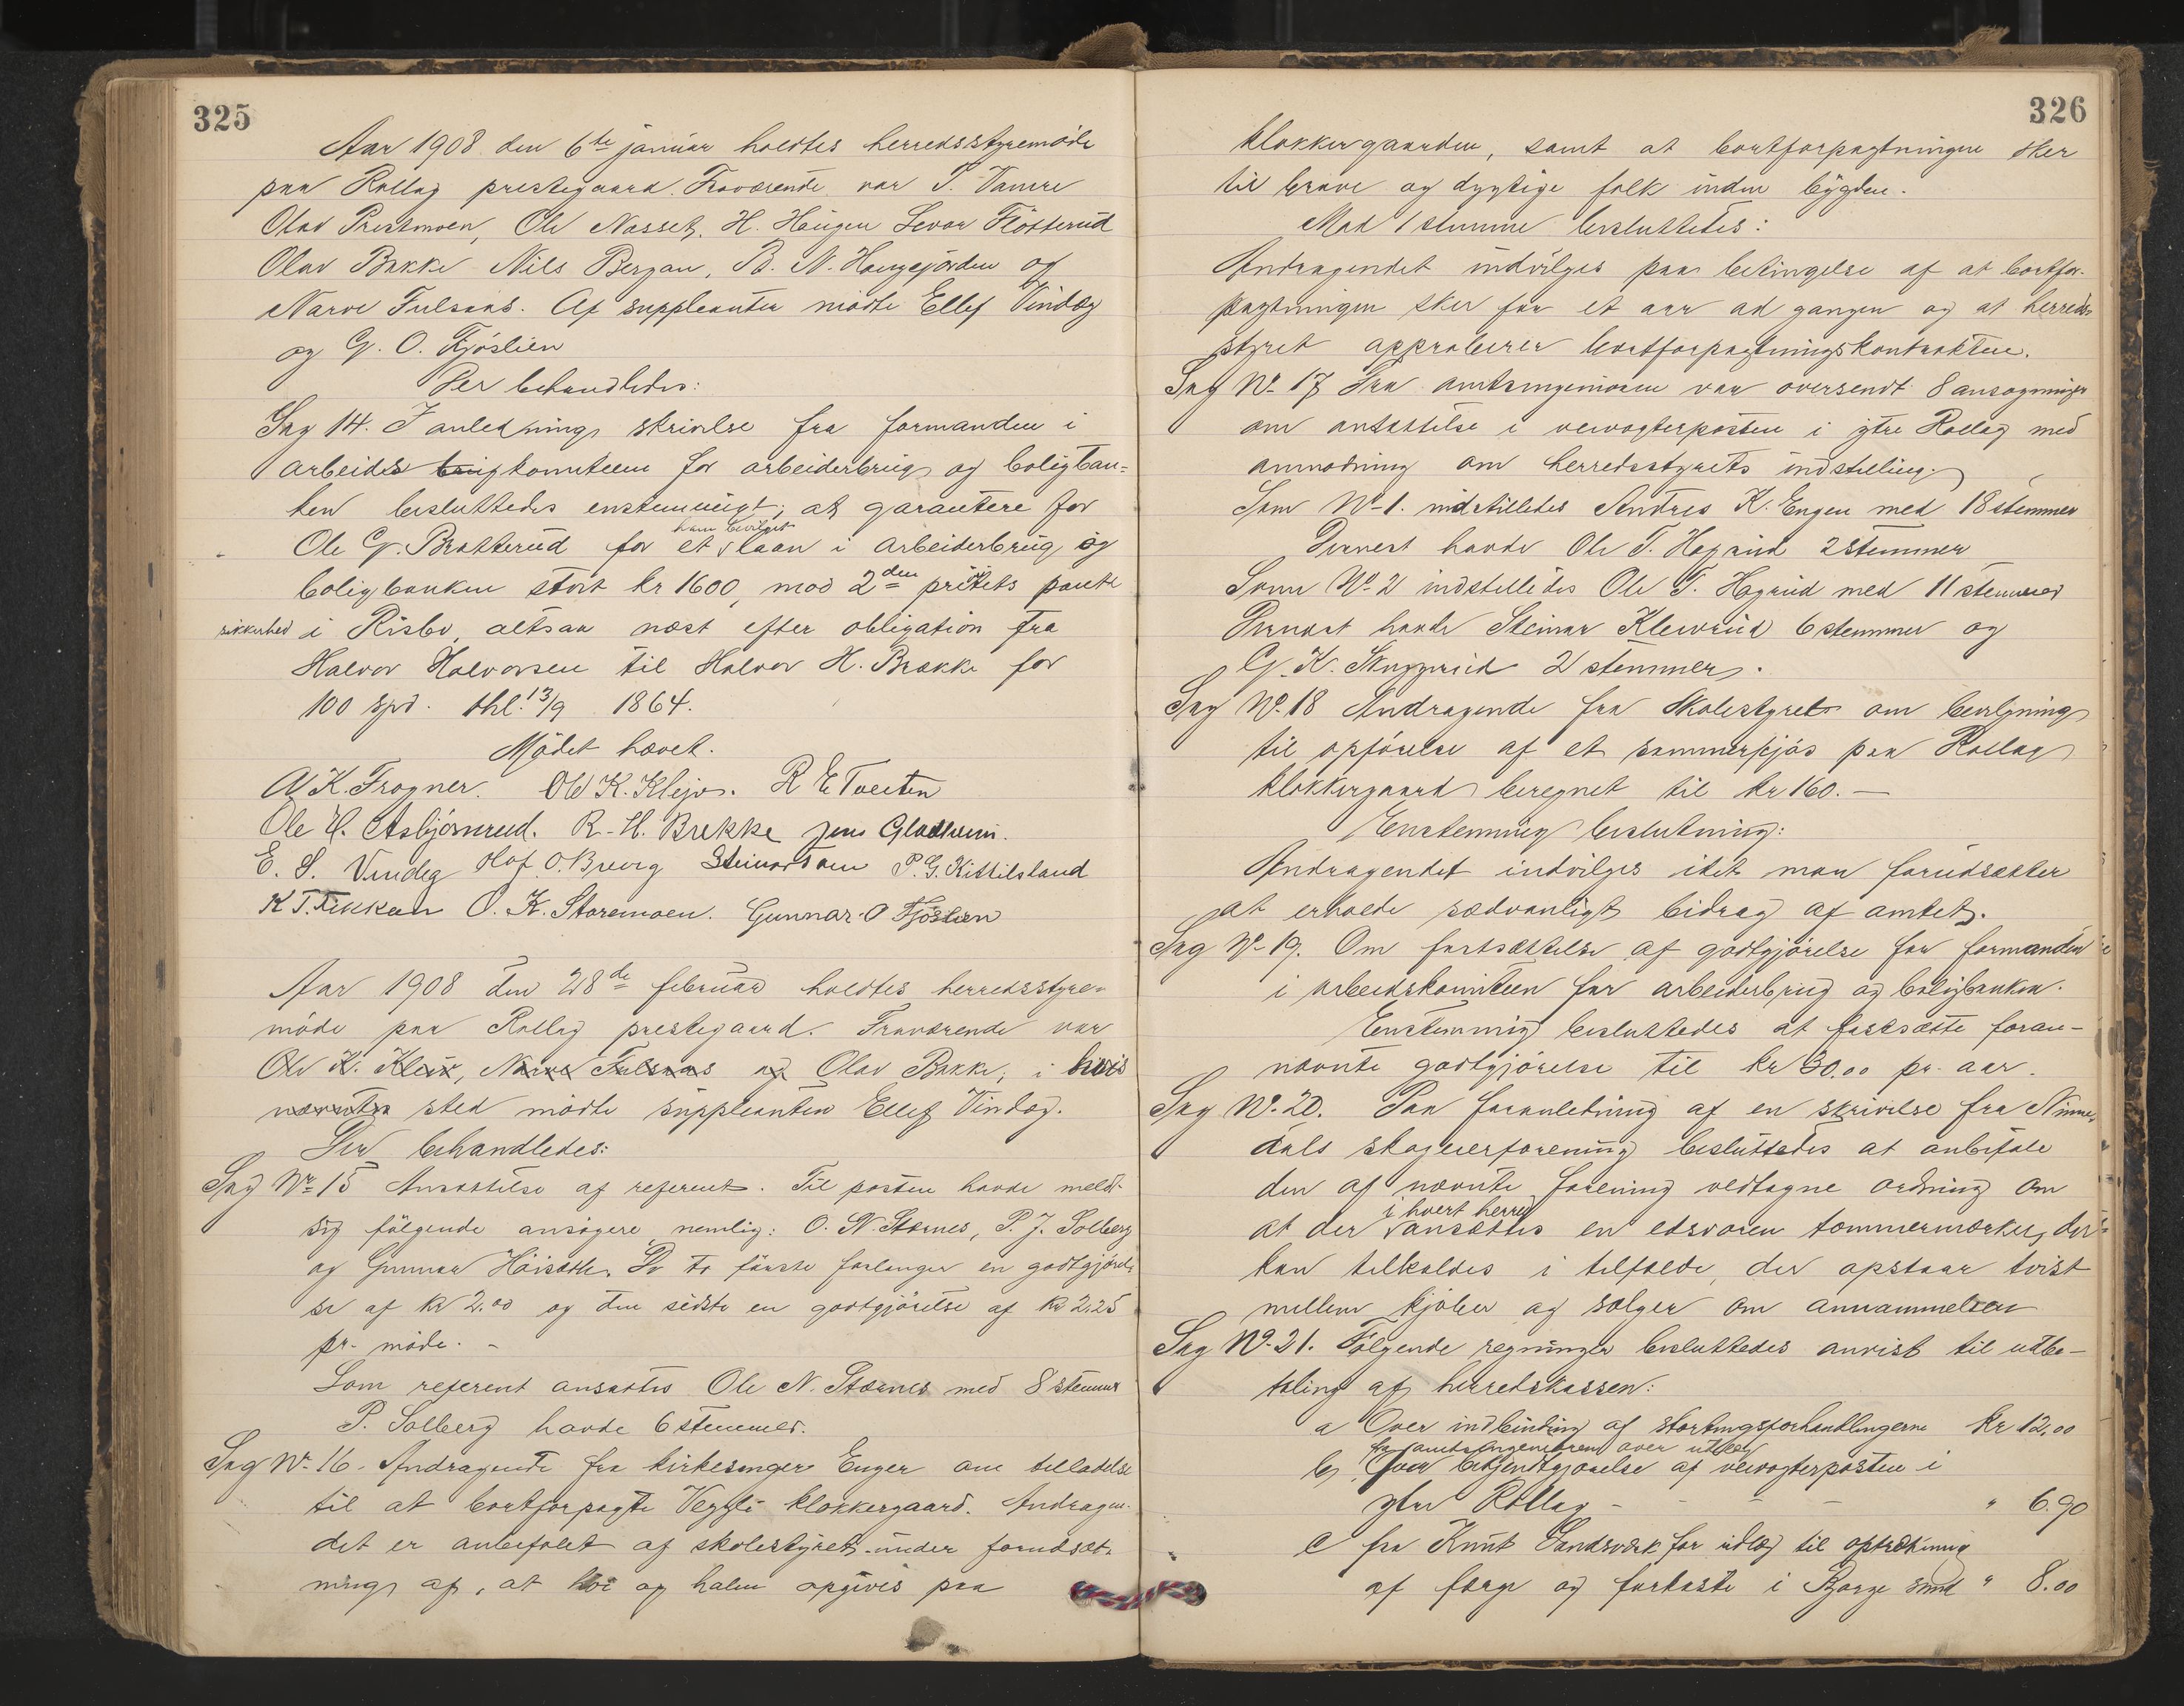 325
Aar 1908 den 6te januar holdtes herredsstyremöde
paa Rollag prestegaard. Fraværende var P. Vamre
Olav Prestmoen, Ole Nasset, H. Haugen Levor Flötterud
Olav Bakke Nils Bergan, B. N. Haugejorden og
Narve Fulsaas. Af suppleanter mödte Ellef Vindeg
og G. O. Fjöslien
Der behandledes:
Sag 14. I anledning skrivelse fra formanden i
arbeids brug komiteen for arbeiderbrug og boligban=
ken besluttedes enstemmigt, at garantere for
ham bevilget
Ole G. Bratterud for et laan i arbeiderbrug og
boligbanken stort kr 1600, mod 2den pritets pante
sikkerhed i Risbo, altsaa næst efter obligation fra
Halvor Halvorsen til Halvor H. Brække for
100 spd. thl. 13/9 1864.
Mödet hævet.
A K. Frogner. Ole K. Klejv. R E Tveiten
Ole H. Asbjörnrud. R. H. Brekke Jens Gladheim.
E. S. Vindeg Olof O. Breverg Steinar P. G. Kittilsland
K T. Tekkan O. K. Storemoen. Gunnar O Fjöslien
Aar 1908 den 28de februar holdtes herredsstyre=
möde paa Rollag prestegaard. Fraværende var
Ole K. Kleiv, Narve Fulsaas og Olav Bakke, i hvis
nævnte sted mödte suppleanten Ellef Vindeg.
Der behandledes:
Sag Nr 15 Ansættelse af referent. Til posten havde meldt
sig fölgende ansögere nemlig: O. N. Stærnes, P. J. Solberg
og Gunnar Höiseth. De to förste forlanger en godtgjörel-
se af kr 2.00 og den sidste en godtgjörelse af kr 2.25
pr. möde. -
Som referent ansættes Ole N. Stærnes med 8 stemmer
P. Solberg havde 6 stemmer.
Sag Nr 16. Andragende fra kirkesanger Enger om tilladelse
til at bortforpagte Veggli klokkergaard. Andragen-
det er anbefalet af skolestyret under forudsæt-
ning af, at höi og halm opgives paa
326
klokkergaarden, samt at bortforpagtningen sker
til brave og dygtige folk inden bygden.
Mod 1 stemme besluttedes:
Andragendet indvilges paa betingelse af at bortfor-
pagtningen sker for et aar ad gangen og at herreds-
styret approberer bortforpagtningskontrakten.
Sag No 17 Fra amtsingeniøren var oversendt 8 ansøgninger
om ansættelse i veivogterposten i ytre Rollag med
anmodning om herredsstyrets indstilling.
Som No 1. indstilledes Andres K. Engen med 18 stemmer
Dernest havde Ole T. Hagrud 2 stemmer
Som No 2 indstilledes Ole T. Hagrud med 11 stemmer
Dernæst havde Steinar Kleivrud 6 stemmer og
G. K. Skuggrud 2 stemmer.
Sag No. 18 Andragende fra skolestyret om bevilgning
til opförelse af et sommerfjös paa Rollag
klokkergaard beregnet til kr 160. —
Enstemmig beslutning:
Andragendet indvilges idet man forudsætter
at erholde sædvanligt bidrag af amtet.
Sag No 19. Om fastsættelse af godtgjörelse for formanden
i arbeidskomiteen for arbeiderbrug og boligbanken.
Enstemmig besluttedes at fastsætte foran-
nævnte godtgjörelse til kr 30.00 pr. aar.
Sag No. 20. Paa foranledning af en skrivelse fra Nume-
dals skogeierforening besluttedes at anbefale
den af nævnte forening vedtagne ordning om
i hvert herred
at der ansættes en edsvoren tømmermærker, der
kan tilkaldes i tilfælde, der opstaar tvist
mellem kjöber og sælger om annammelsen
Sag No. 21. Fölgende regninger besluttedes anvist til udbe-
taling af herredskassen:
a Over indbinding af stortingsforhandlingerne kr 12,00
fra amtsingeniøren over utlæg
b, Over bekjendtgjørelse af veivogterposten i
ytre Rollag - - - - " 6.90
c fra Knut Sandsværk for udlæg til optrækning
af færge og forhaste i Borge sund " 8.00